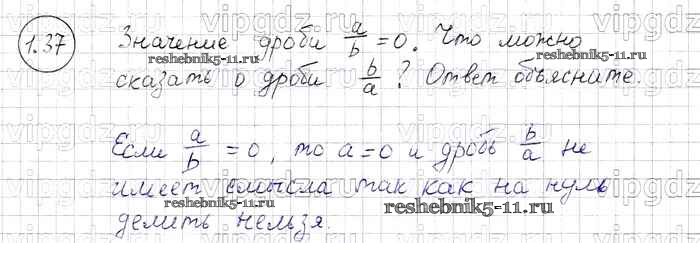 1.37 Значение дроби a/b = 0. Что можно
сказать о дроби b/a? Ответ объясните.
reshebnik5-11.ru
reshebnik5-11.ru
Если a/b = 0, то a = 0 и дробь b/a не
имеет смысла так как на нуль
делить нельзя.
reshebnik5-11.ru
reshebnik5-11.ru